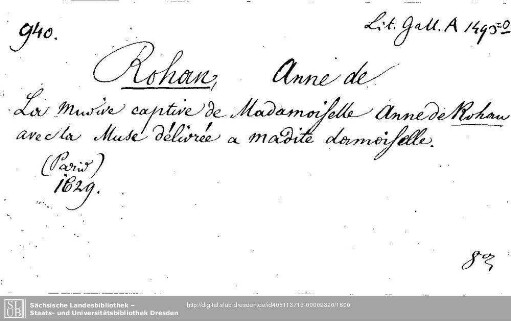 940.
Lit. Gall. A 1495
Rohan, Anne de
La captive de Madamoiselle Anne de Rohan
avec la Muse délivrée a madite damoiselle.
(Paris)
1629.
8º
Sächsische Landesbibliothek –
Staats- und Universitätsbibliothek Dresden